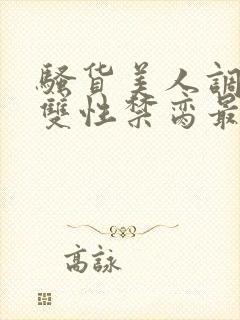 騷貨美人調
雙性禁臠最
高詠